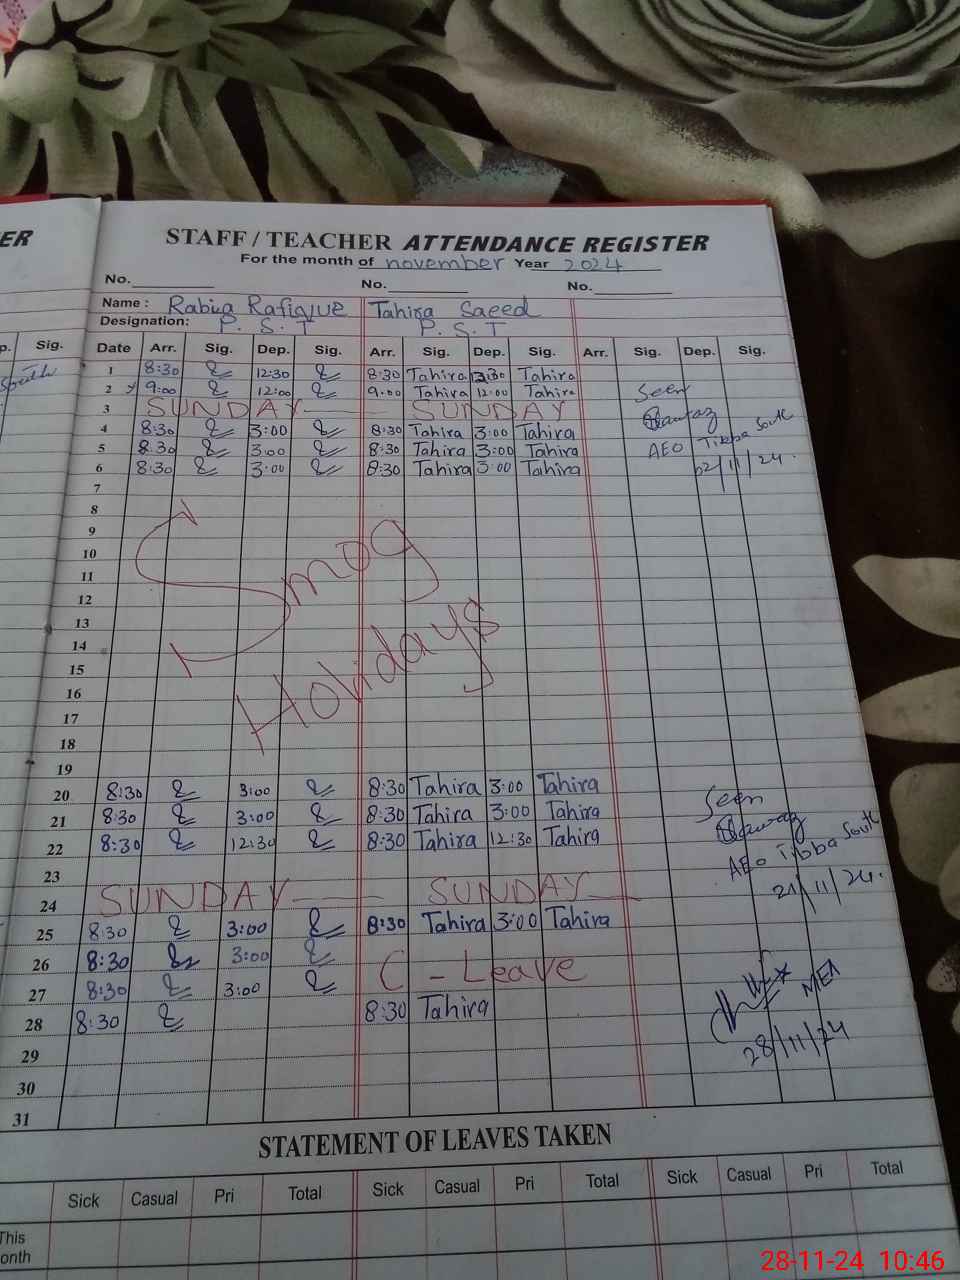 ER
STAFF / TEACHER ATTENDANCE REGISTER
For the month of november Year 2024
No. No. No.
Name : Rabia Rafique Tahira Saeed
Designation: P. S. T P. S. T
p. Sig. Date Arr. Sig. Dep. Sig. Arr. Sig. Dep. Sig. Arr. Sig. Dep. Sig.
South 1 8:30 12:30 8:30 Tahira 12:30 Tahira
2 9:00 12:00 9:00 Tahira 12:00 Tahira Seen
3 SUNDAY SUNDAY
4 8:30 3:00 8:30 Tahira 3:00 Tahira
5 8:30 3:00 8:30 Tahira 3:00 Tahira AEO Tibba South
6 8:30 3:00 8:30 Tahira 3:00 Tahira 02/11/24.
7
8
9
10
11
12
13
14
15
16
17
18
19
Smog
Holidays
20 8:30 3:00 8:30 Tahira 3:00 Tahira Seen
21 8:30 3:00 8:30 Tahira 3:00 Tahira
22 8:30 12:30 8:30 Tahira 12:30 Tahira AEO Tibba South
23 21/11/24.
24 SUNDAY SUNDAY
25 8:30 3:00 8:30 Tahira 3:00 Tahira
26 8:30 3:00 C - Leave
27 8:30 3:00 MEA
28 8:30 8:30 Tahira 28/11/24
29
30
31
STATEMENT OF LEAVES TAKEN
Sick Casual Pri Total Sick Casual Pri Total Sick Casual Pri Total
This
onth
28-11-24 10:46